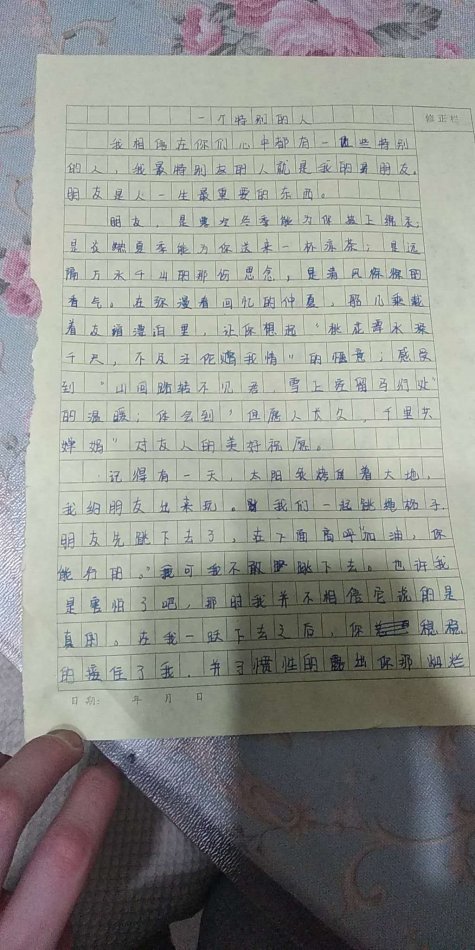 一个特别的人
修正栏
我相信在你们心中都有一些特别
的人，我最特别的人就是我的朋友。
朋友是人一生最重要的东西。
朋友，是寒冷冬季能为你披上绵衣；
是在炎夏季能为你送来一杯凉茶；是远
隔万水千山的那份思念，是清风徐徐的
香气。在弥漫着回忆的仲夏，船儿乘载
着友谊漂泊里，让你想起“桃花潭水深
千尺，不及汪伦赠我情”的惬意；感受
到“山回路转不见君，雪上空留马行处”
的温暖；体会到“但愿人长久，千里共
婵娟”对友人的美好祝愿。
记得有一天，太阳炙烤着大地，
我约朋友出来玩。我们一起跳
朋友先跳下去了，在下面高呼“加油，你
能行的。”可我不敢跳下去。也许我
是害怕了吧，那时我并不相信它说的是
真的。在我一跃下去之后，你稳稳
的接住了我，并习惯性的露出你那灿烂
日期： 年 月 日